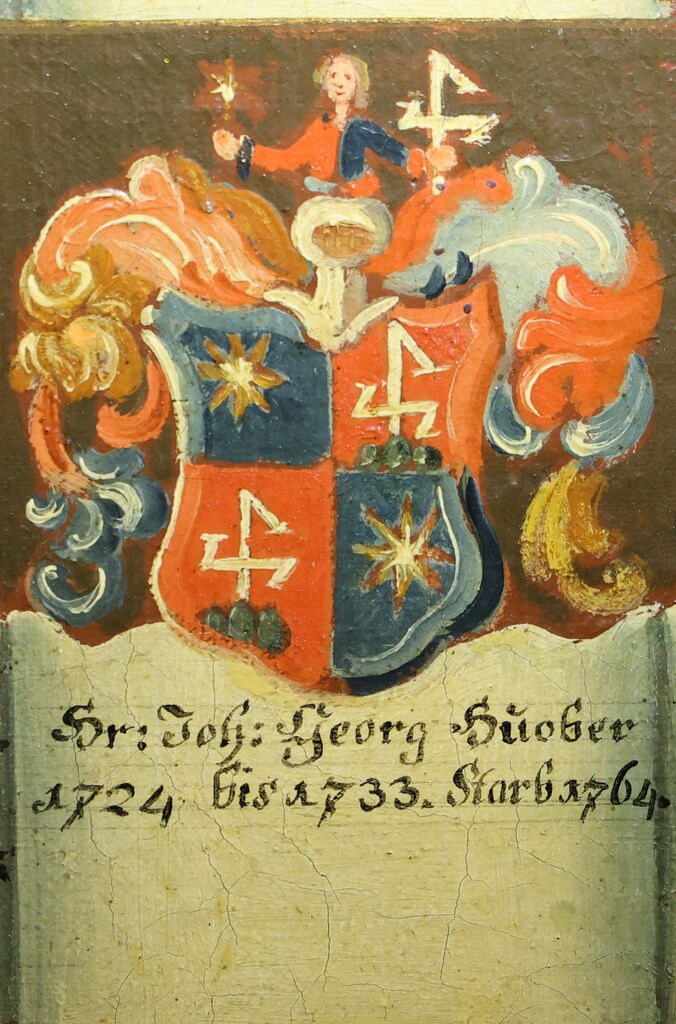 Hr: Joh: Georg Hůober
1724 bis 1733. Starb 1764.